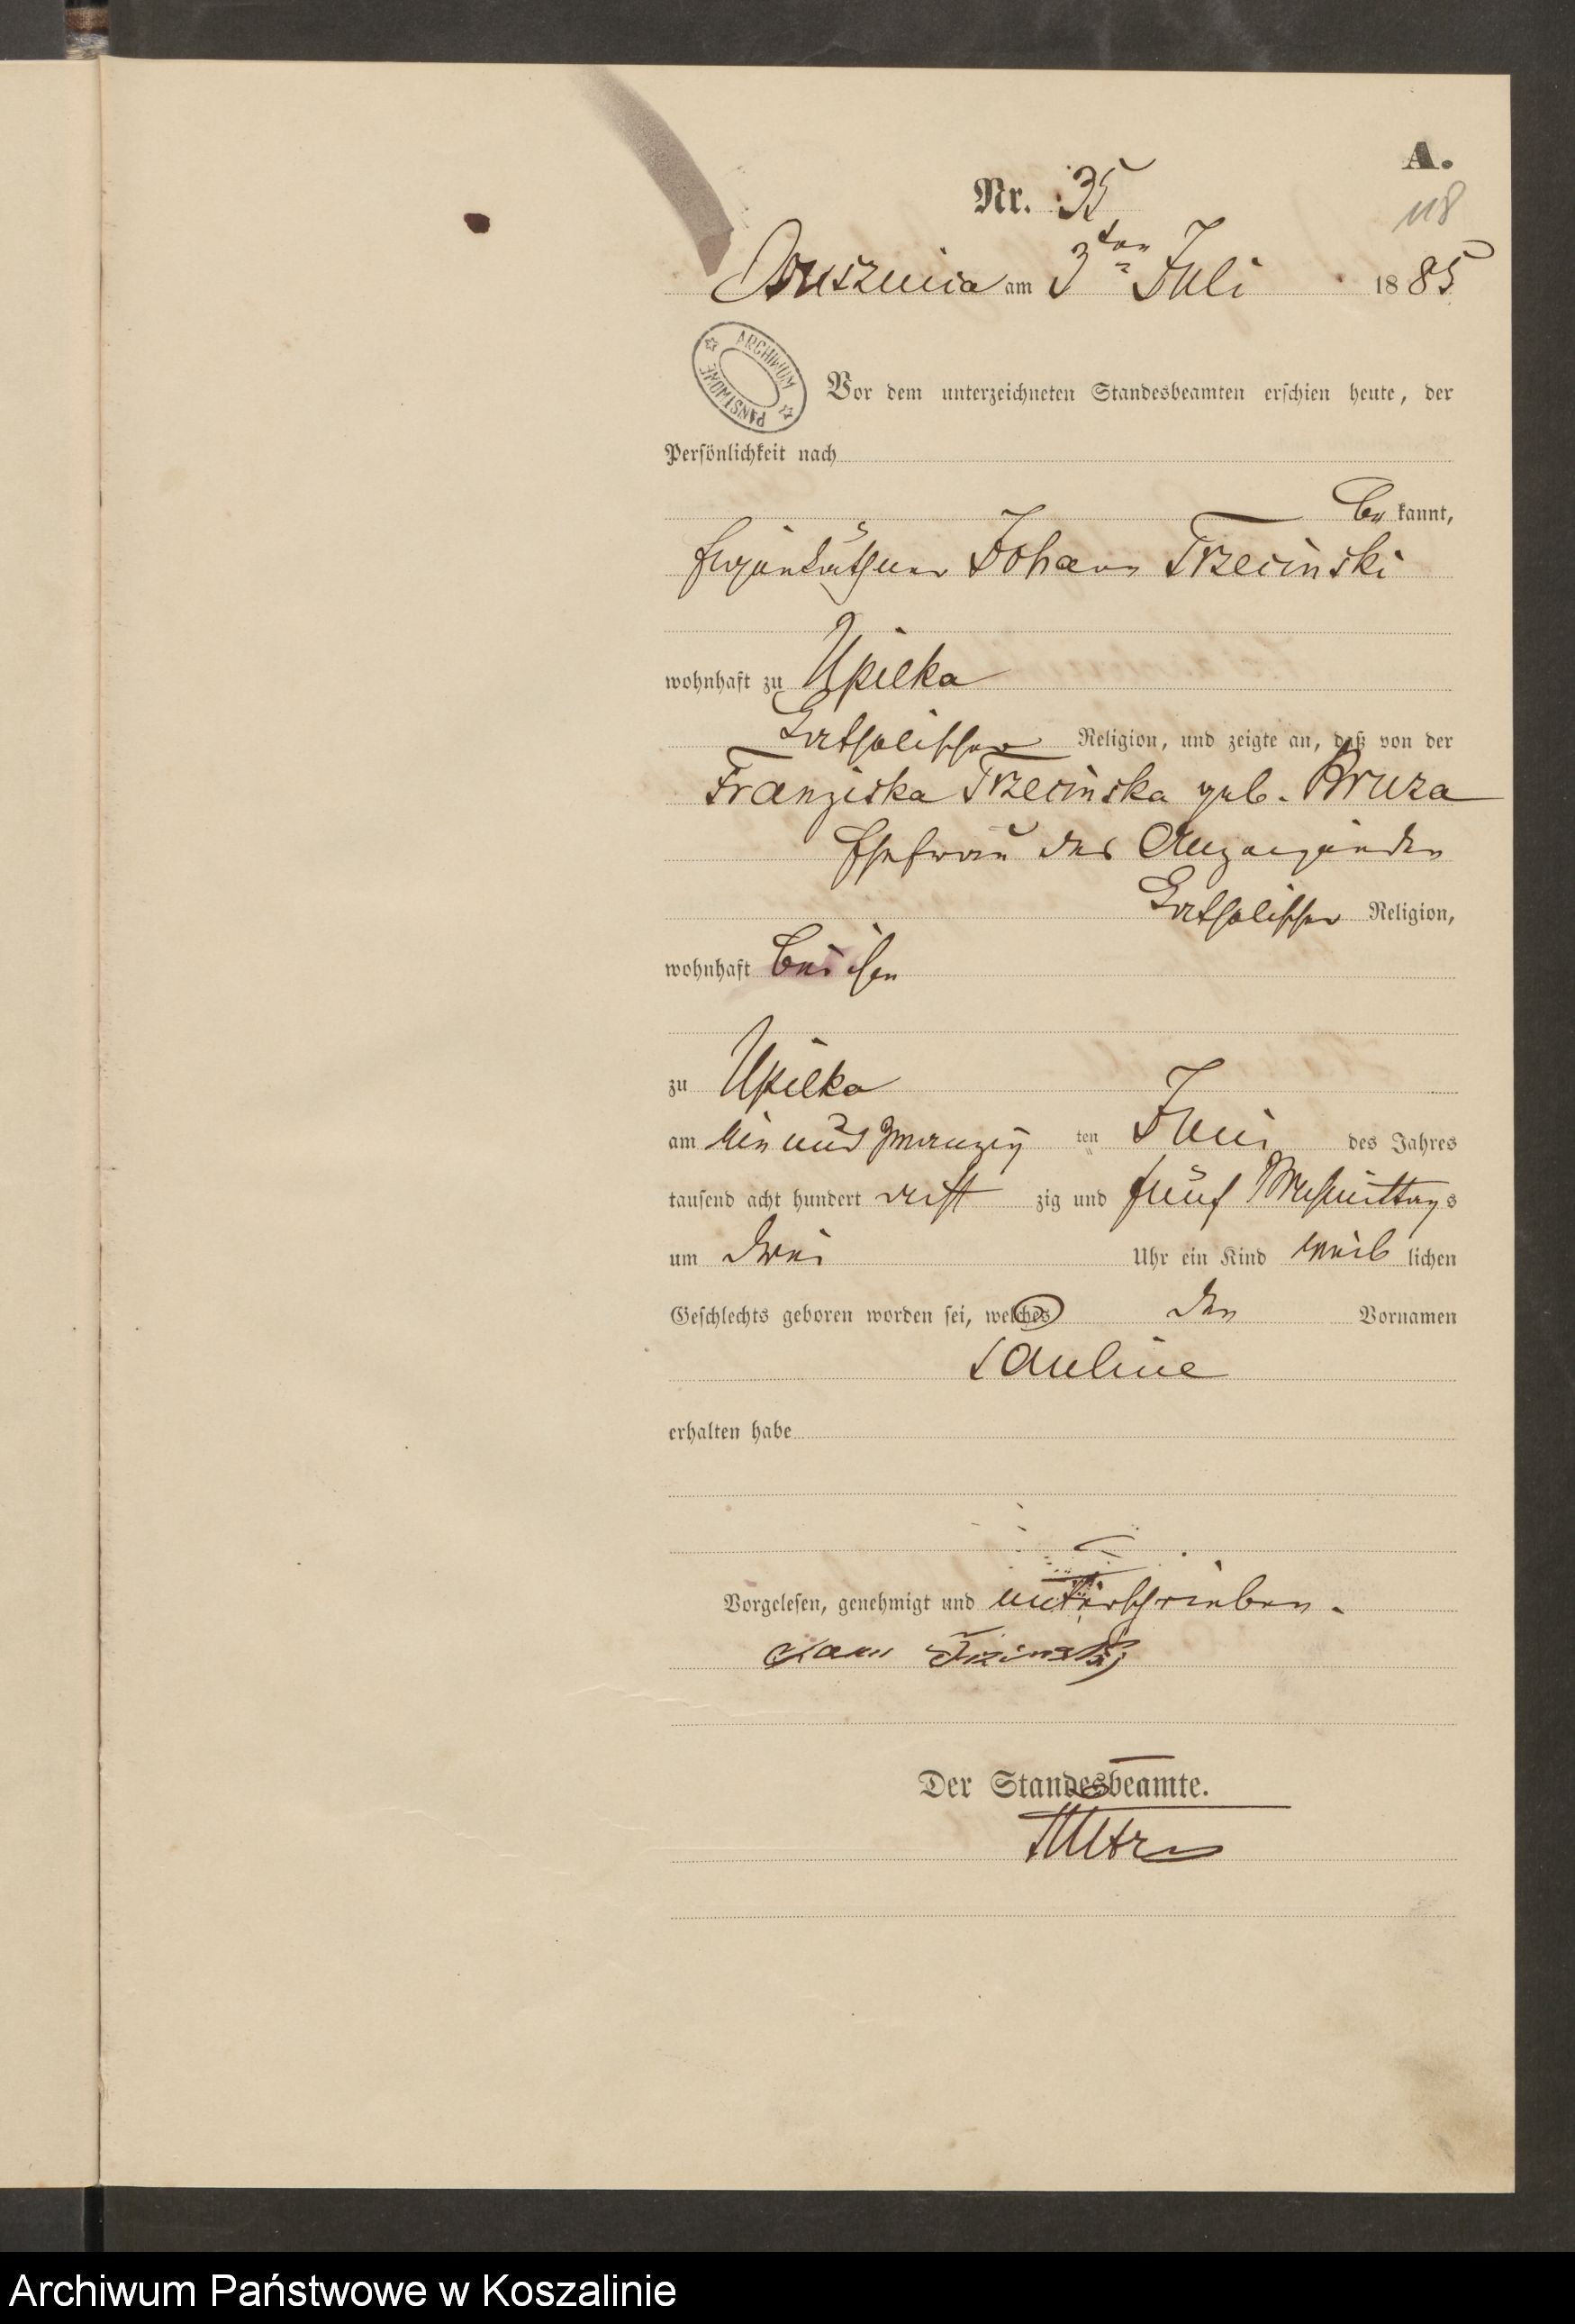 A.
Nr. 35
118
Borzuszina am 3ten Juli 1885
ARCHIWUM PAŃSTWOWE
Vor dem unterzeichneten Standesbeamten erschien heute, der
Persönlichkeit nach
be kannt,
Eigenkäthner Johann Trzecinski
wohnhaft zu Upilka
katholischer Religion, und zeigte an, daß von der
Franziska Trzecinska geb. Bruza
Ehefrau des Anzeigenden
katholischer Religion,
wohnhaft bei ihm
zu Upilka
am ein und zwanzig ten Juni des Jahres
tausend acht hundert acht zig und fünf Nachmittags
um drei Uhr ein Kind weib lichen
Geschlechts geboren worden sei, welches den Vornamen
Pauline
erhalten habe
Vorgelesen, genehmigt und unterschrieben.
Der Standesbeamte.
Archiwum Państwowe w Koszalinie